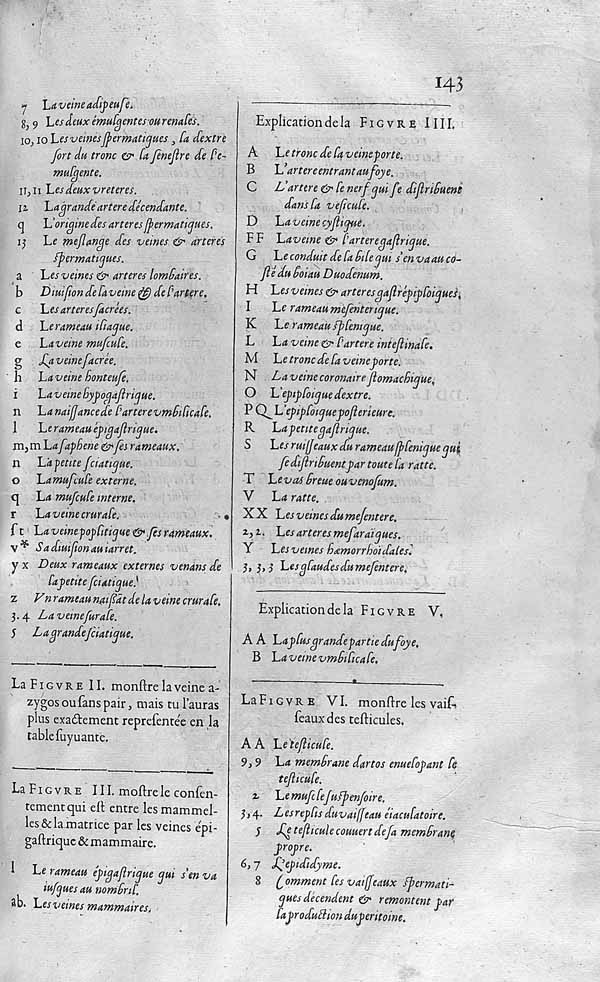 143
7 La veine adipeuse.
8, 9 Les deux émulgentes ou renales.
10, 10 Les veines spermatiques, la dextre
sort du tronc & la senestre de l'e-
mulgente.
11, 11 Les deux vreteres.
12 La grande artere décendante.
q L'origine des arteres spermatiques.
13 Le meslange des veines & arteres
spermatiques.
a Les veines & arteres lombaires.
b Diuision de la veine & de l'artere.
c Les arteres sacrées.
d Le rameau iliaque.
e La veine muscule.
g La veine sacrée.
h La veine honteuse.
i La veine hypogastrique.
n La naissance de l'artere vmbilicale.
l Le rameau épigastrique.
m, m La saphene & ses rameaux.
n La petite sciatique.
o La muscule externe.
q La muscule interne.
r La veine crurale.
ſ t La veine poplitique & ses rameaux.
v* Sa diuision au iarret.
y x Deux rameaux externes venans de
la petite sciatique.
z Vn rameau naissãt de la veine crurale.
3. 4 La veine surale.
5 La grande sciatique.
La FIGVRE II. monstre la veine a-
zygos ou sans pair, mais tu l'auras
plus exactement representée en la
table suyuante.
La FIGVRE III. mostre le consen-
tement qui est entre les mammel-
les & la matrice par les veines épi-
gastrique & mammaire.
l Le rameau épigastrique qui s'en va
iusques au nombril.
ab. Les veines mammaires.
Explication de la FIGVRE IIII.
A Le tronc de la veine porte.
B L'artere entrant au foye.
C L'artere & le nerf qui se distribuent
dans la vesicule.
D La veine cystique.
F F La veine & l'artere gastrique.
G Le conduit de la bile qui s'en va au co-
sté du boiau Duodenum.
H Les veines & arteres gastrépiploiques.
I Le rameau mesenterique.
K Le rameau splenique.
L La veine & l'artere intestinale.
M Le tronc de la veine porte.
N La veine coronaire stomachique.
O L'epiploique dextre.
P Q L'epiploique posterieure.
R La petite gastrique.
S Les ruisseaux du rameau splenique qui
se distribuent par toute la ratte.
T Le vas breue ou venosum.
V La ratte.
X X Les veines du mesentere.
2, 2. Les arteres mesaraiques.
Y Les veines hæmorrhoidales.
3, 3, 3 Les glaudes du mesentere.
Explication de la FIGVRE V.
A A La plus grande partie du foye.
B La veine vmbilicale.
La FIGVRE VI. monstre les vais-
seaux des testicules.
A A Le testicule.
9, 9 La membrane dartos enuelopant le
testicule.
2 Le muscle suspensoire.
3, 4. Les replis du vaisseau éiaculatoire.
5 Le testicule couuert de sa membrane
propre.
6, 7 L'epididyme.
8 Comment les vaisseaux spermati-
ques décendent & remontent par
la production du peritoine.